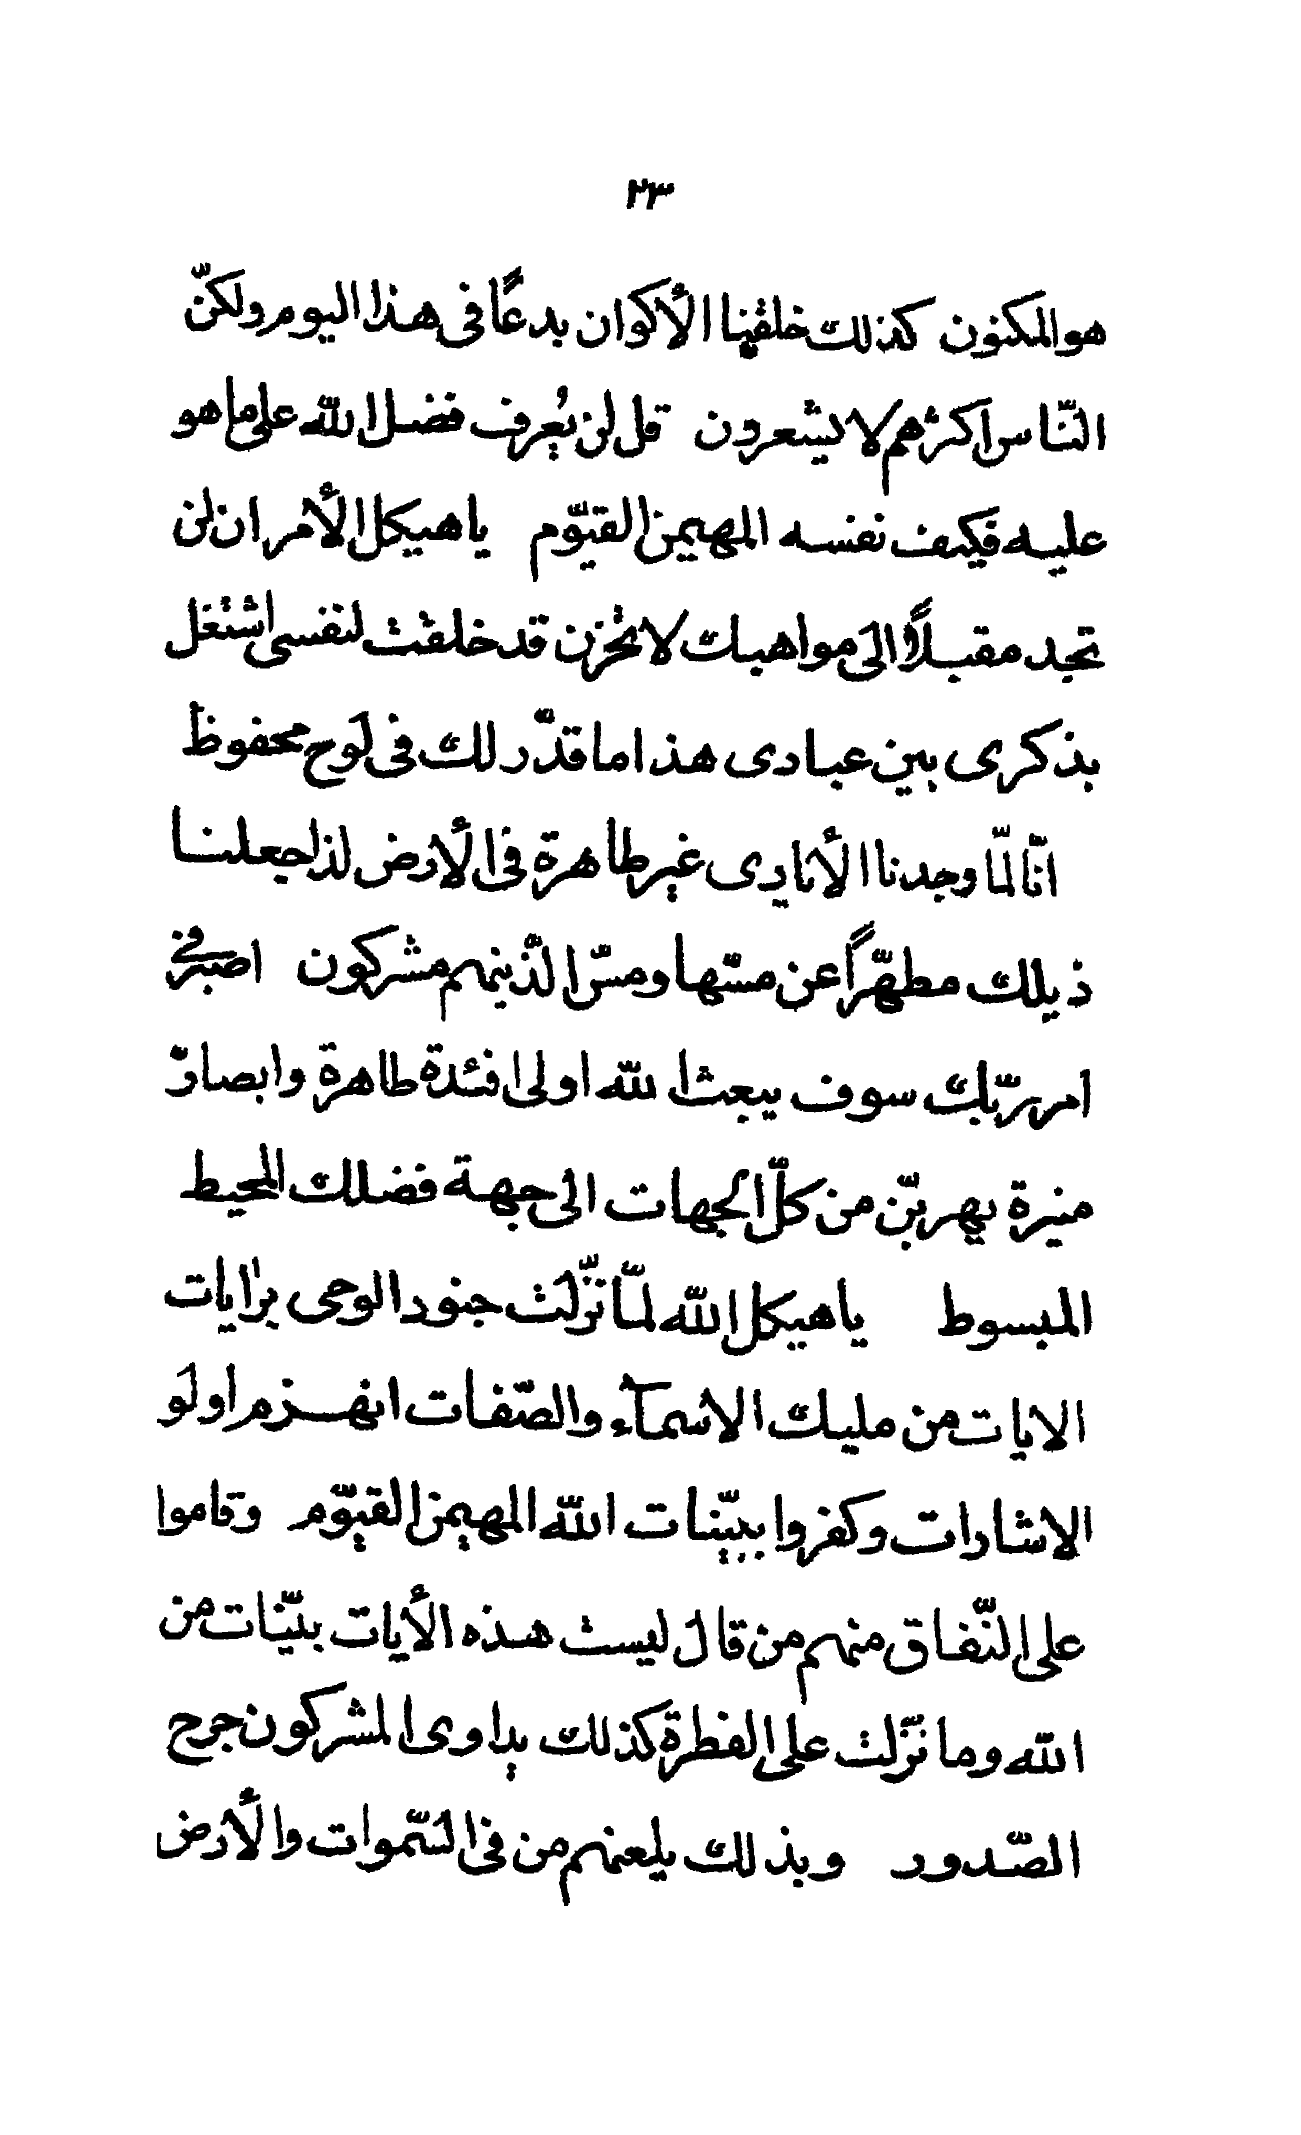 ٢٣
هو المكنون كذلك خلقنا الأكوان بدعًا فى هذا اليوم ولكنّ
النّاس اكثرهم لا يشعرون قل لن يُعرف فضل الله على ما هو
عليه فكيف نفسه المهيمن القيّوم يا هيكل الأمر ان لن
تجد مقبلًا الى مواهبك لا تحزن قد خلقت لنفسى اشتغل
بذكرى بين عبادى هذا ما قدّر لك فى لوح محفوظ
انّا لمّا وجدنا الأيادى غير طاهرة فى الأرض لذا جعلنا
ذيلك مطهّرًا عن مسّها ومسّ الّذينهم مشركون اصبر فى
امر ربّك سوف يبعث الله اولى افئدة طاهرة وابصار
منيرة يهربنّ من كلّ الجهات الى جهة فضلك المحيط
المبسوط يا هيكل الله لمّا نزّلت جنود الوحى برايات
الايات من مليك الاسمآء والصّفات انهزم اولو
الاشارات وكفروا ببيّنات الله المهيمن القيّوم وقاموا
على النّفاق منهم من قال ليست هذه الأيات بيّنات من
الله وما نزّلت على الفطرة كذلك يداوى المشركون جرح
الصّدور وبذلك يلعنهم من فى السّموات والأرض